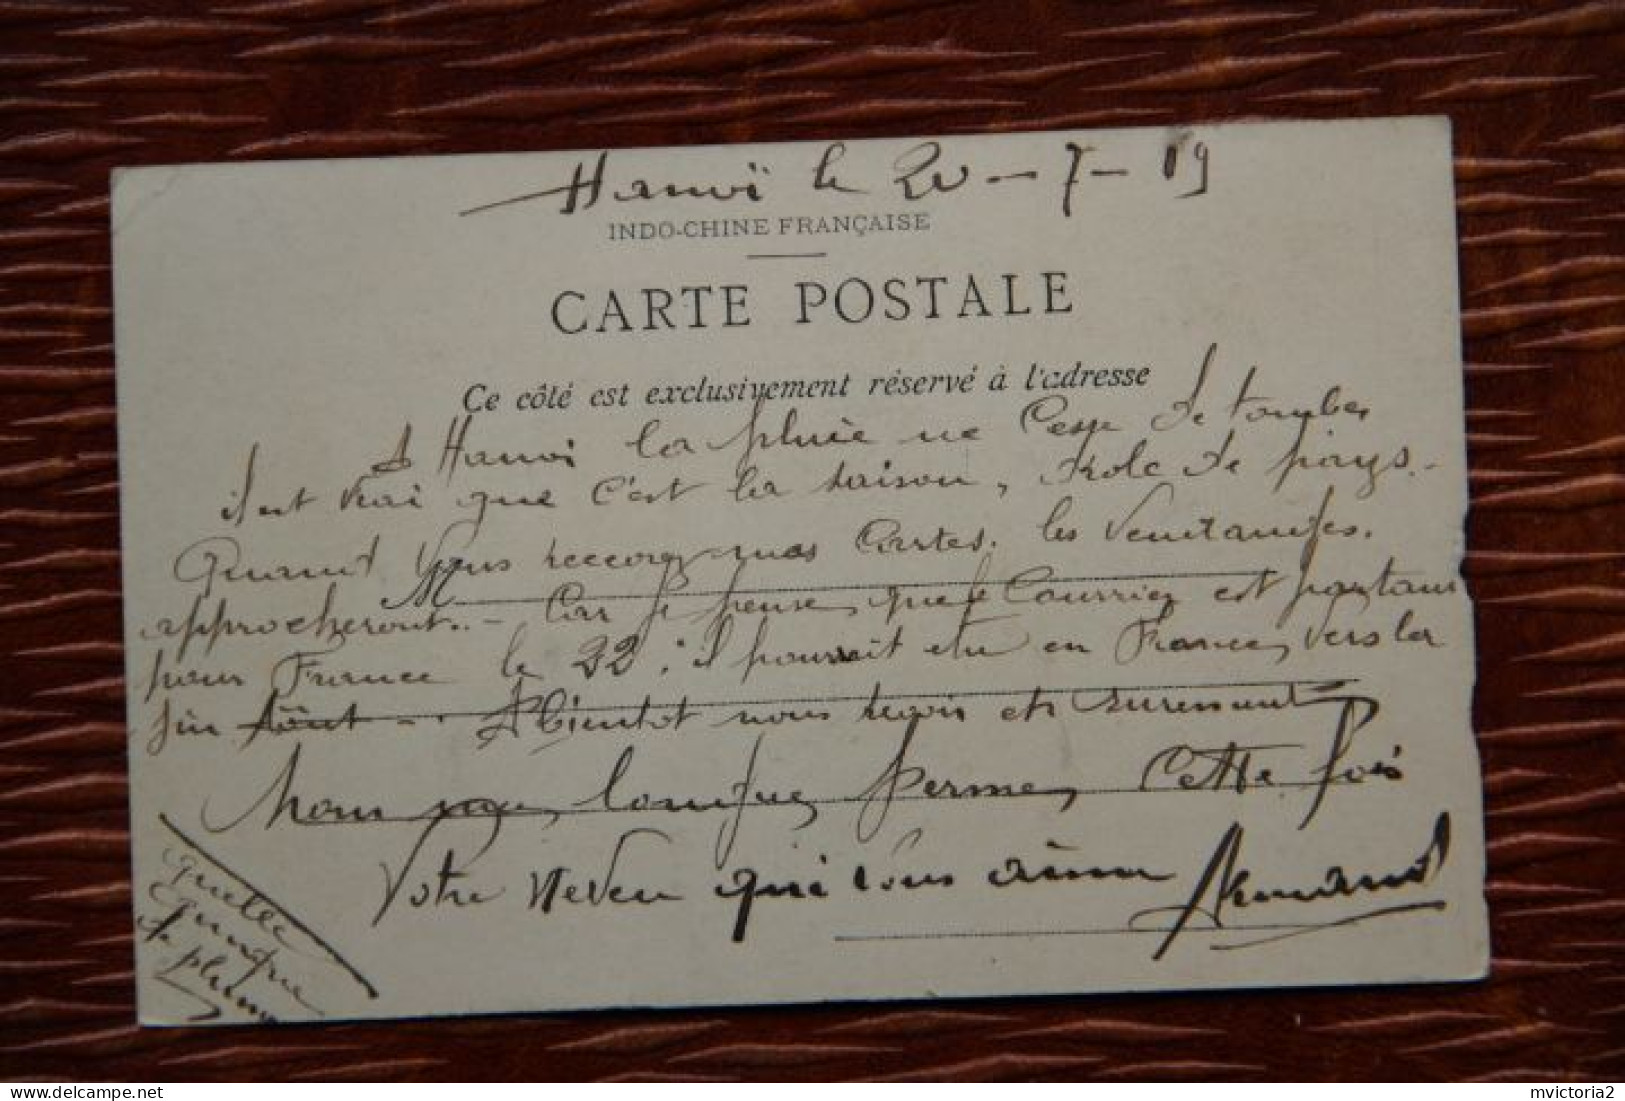 Hanoï le 20 - 7 - 19
INDO-CHINE FRANÇAISE
CARTE POSTALE
Ce côté est exclusivement réservé à l'adresse
A Hanoi la pluie ne Cesse de tomber
il est vrai que c'est la saison, drole de pays. -
Quand Vous recevrez mes Cartes. les Vendanges.
M
approcheront.. - Car je pense, que le Courrier est partant
pour France le 22 ; il pourrait etre en France, vers la
fin Août - . A bientot nous revoir et surement
Mon longue, permes, Cette fois
Votre Neveu qui vous aime Armand
quelle
de plume
mvictoria2